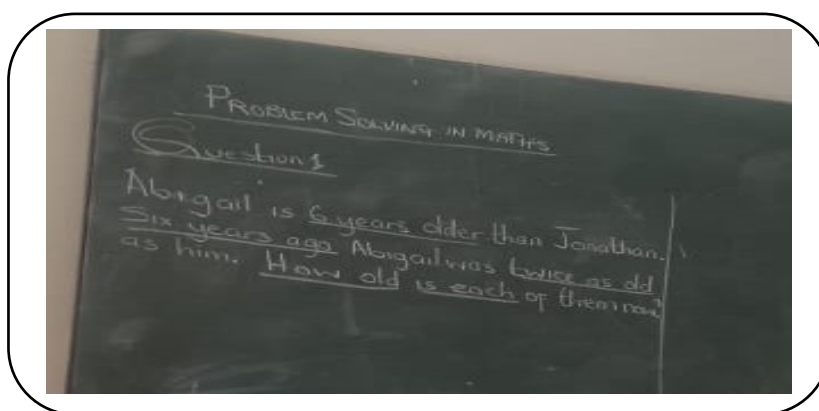 PROBLEM SOLVING IN MATHS
Question 1
Abigail is 6 years older than Jonathan.
Six years ago Abigail was twice as old
as him. How old is each of them now?